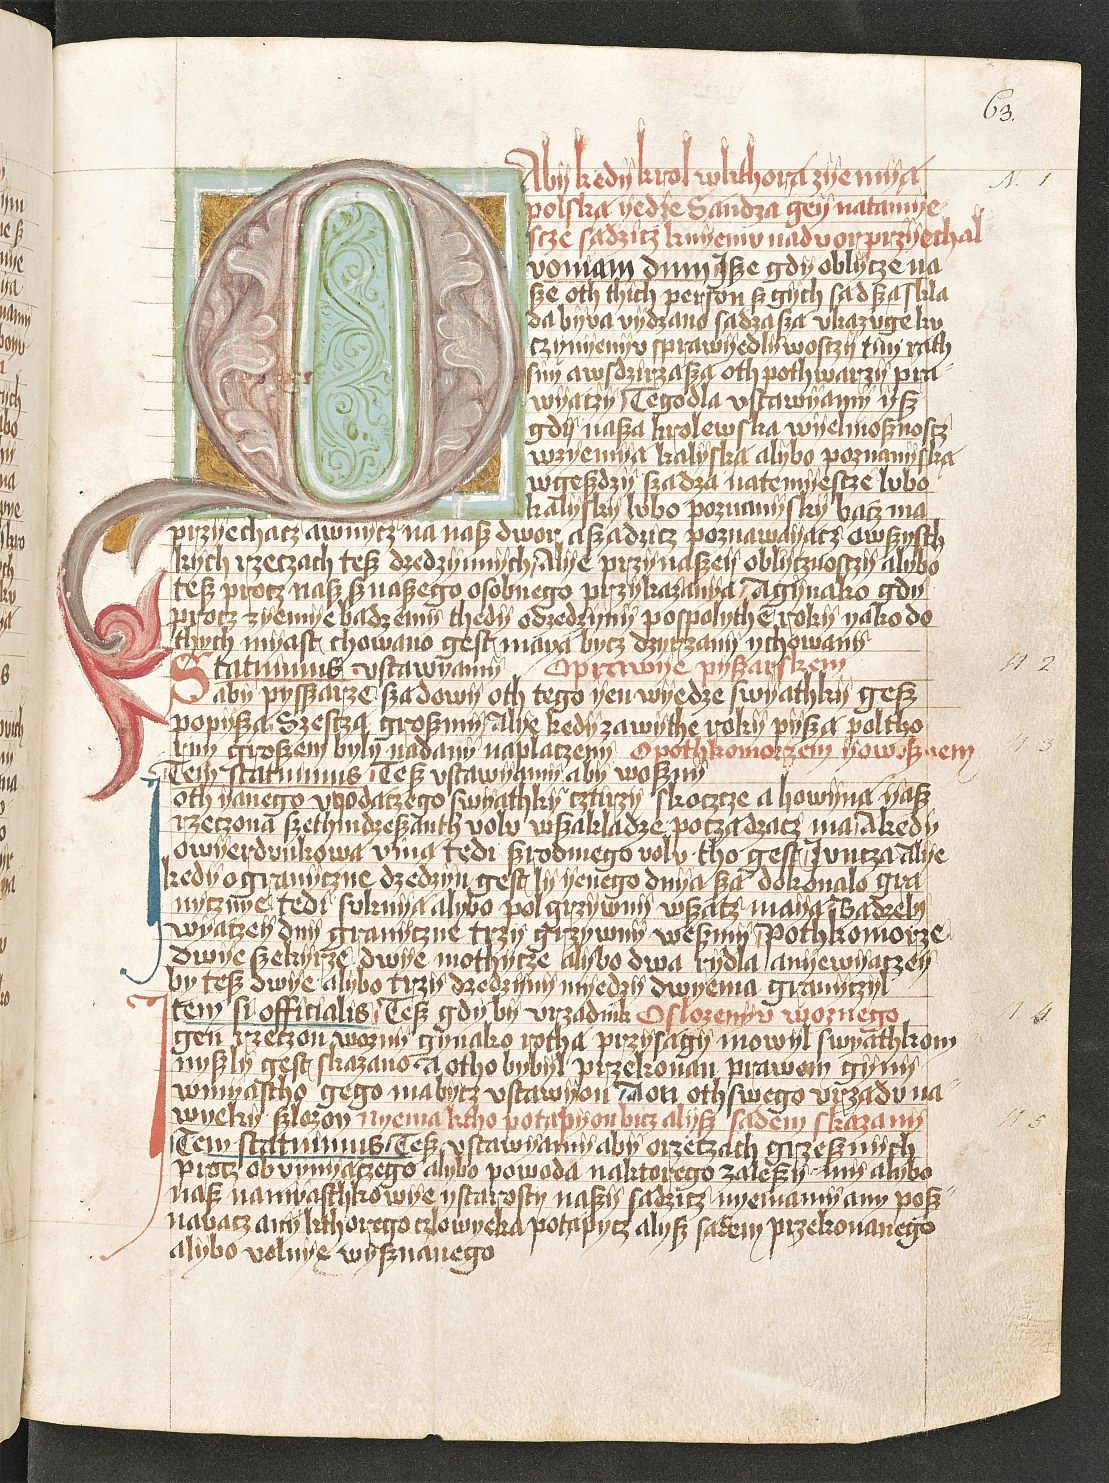 63.
Aby kedy krol wkthorą zyemyą
polską yedze Sandza gey natamye-
scze sądzicz knyemv nadvor przyechal
N. 1
voniam dum Isze gdy oblycze na
sze oth thich person s gych sąd sza skla
da bywa vydzano sądza sza vkazvge ku
czynyenyv sprawyedlywosczy tim rath
sny a wsdzirza sza oth pothwarzy pra-
wyączy Tegodla vstawyamy ysz
gdy nasza krolewska wyelmosznoscz
wzyemya kalyska alybo poznanyska
wgeszdzy sządza natemyescze lvbo
kalysky lvbo poznanysky bacz ma
przyechacz awnycz na nasz dwor asządzicz poznawayącz owszyst
kych rzeczach tesz dzedzynnych Alye przynaszey oblycznosczy alybo
tesz procz nasz sznaszego osobnego przykazanya Agynako gdy
procz zyemye bądzemy thedy odzedzyny pospolythe roky yako do
thych myast chowano gest maya bycz dzyrzany ychowany
Statuimus vstawyamy Oprawye pyszarskem
N 2
aby pysszarze sządowy oth tego yen wyedze swyathky gesz
popysza Szescz groszmy Alye kedy zawythe roky pysza poltho
rym groszem byly nadany naplaczeny Opothkomorzem yowosznem
N 3
Item statuimus Tesz vstawyamy aby woszny
oth yanego vwodączego swyathky cztirzy skoczcze a howyną yasz
rzeczona szethindzeszanth volv wszakladze poczadzacz ma Akedy
owyerdunkowa vina tedi szrodniego volv tho gest Juncza Alye
kedy ogranyczne dzedzyn gest ly yenego dnya sza dokonalo gra
nycznye tedi svknya alybo pol grzywny wszacz maya Bądzely
wyączey dny granyczne trzy grzywny weszmy Pothkomorze
dwye szekyrze dwye mothycze alybo dwa rydla anyewyączey
by tesz dwye alybo trzy dzedzyny myedzy dwyema granyczyl
Item si officialis Tesz gdy by vrządnik Oslozenyv woznego
N. 4
gen rzeczon wozny gynako rotha przysagy mowyl swyathkom
nyszly gest skazano A otho bybyl przekonan prawem gyny
wmyastho gego ma bycz vstawyon A on oth swego vrządu na
wyeky szlozon Nyema ktho potąpyon bicz alysz sądem skazany
N 5
Item statuimus Tesz vstawyamy aby orzeczach grzesznych
procz obvynyączego alybo powoda naktorego zaleszy my alybo
nasz namyasthkowye ystarosty naszy sądzicz nyemamy any posz-
nabacz any kthorego czlowyeka potąpycz alysz sądem przekonanego
alybo volnye wysznanego